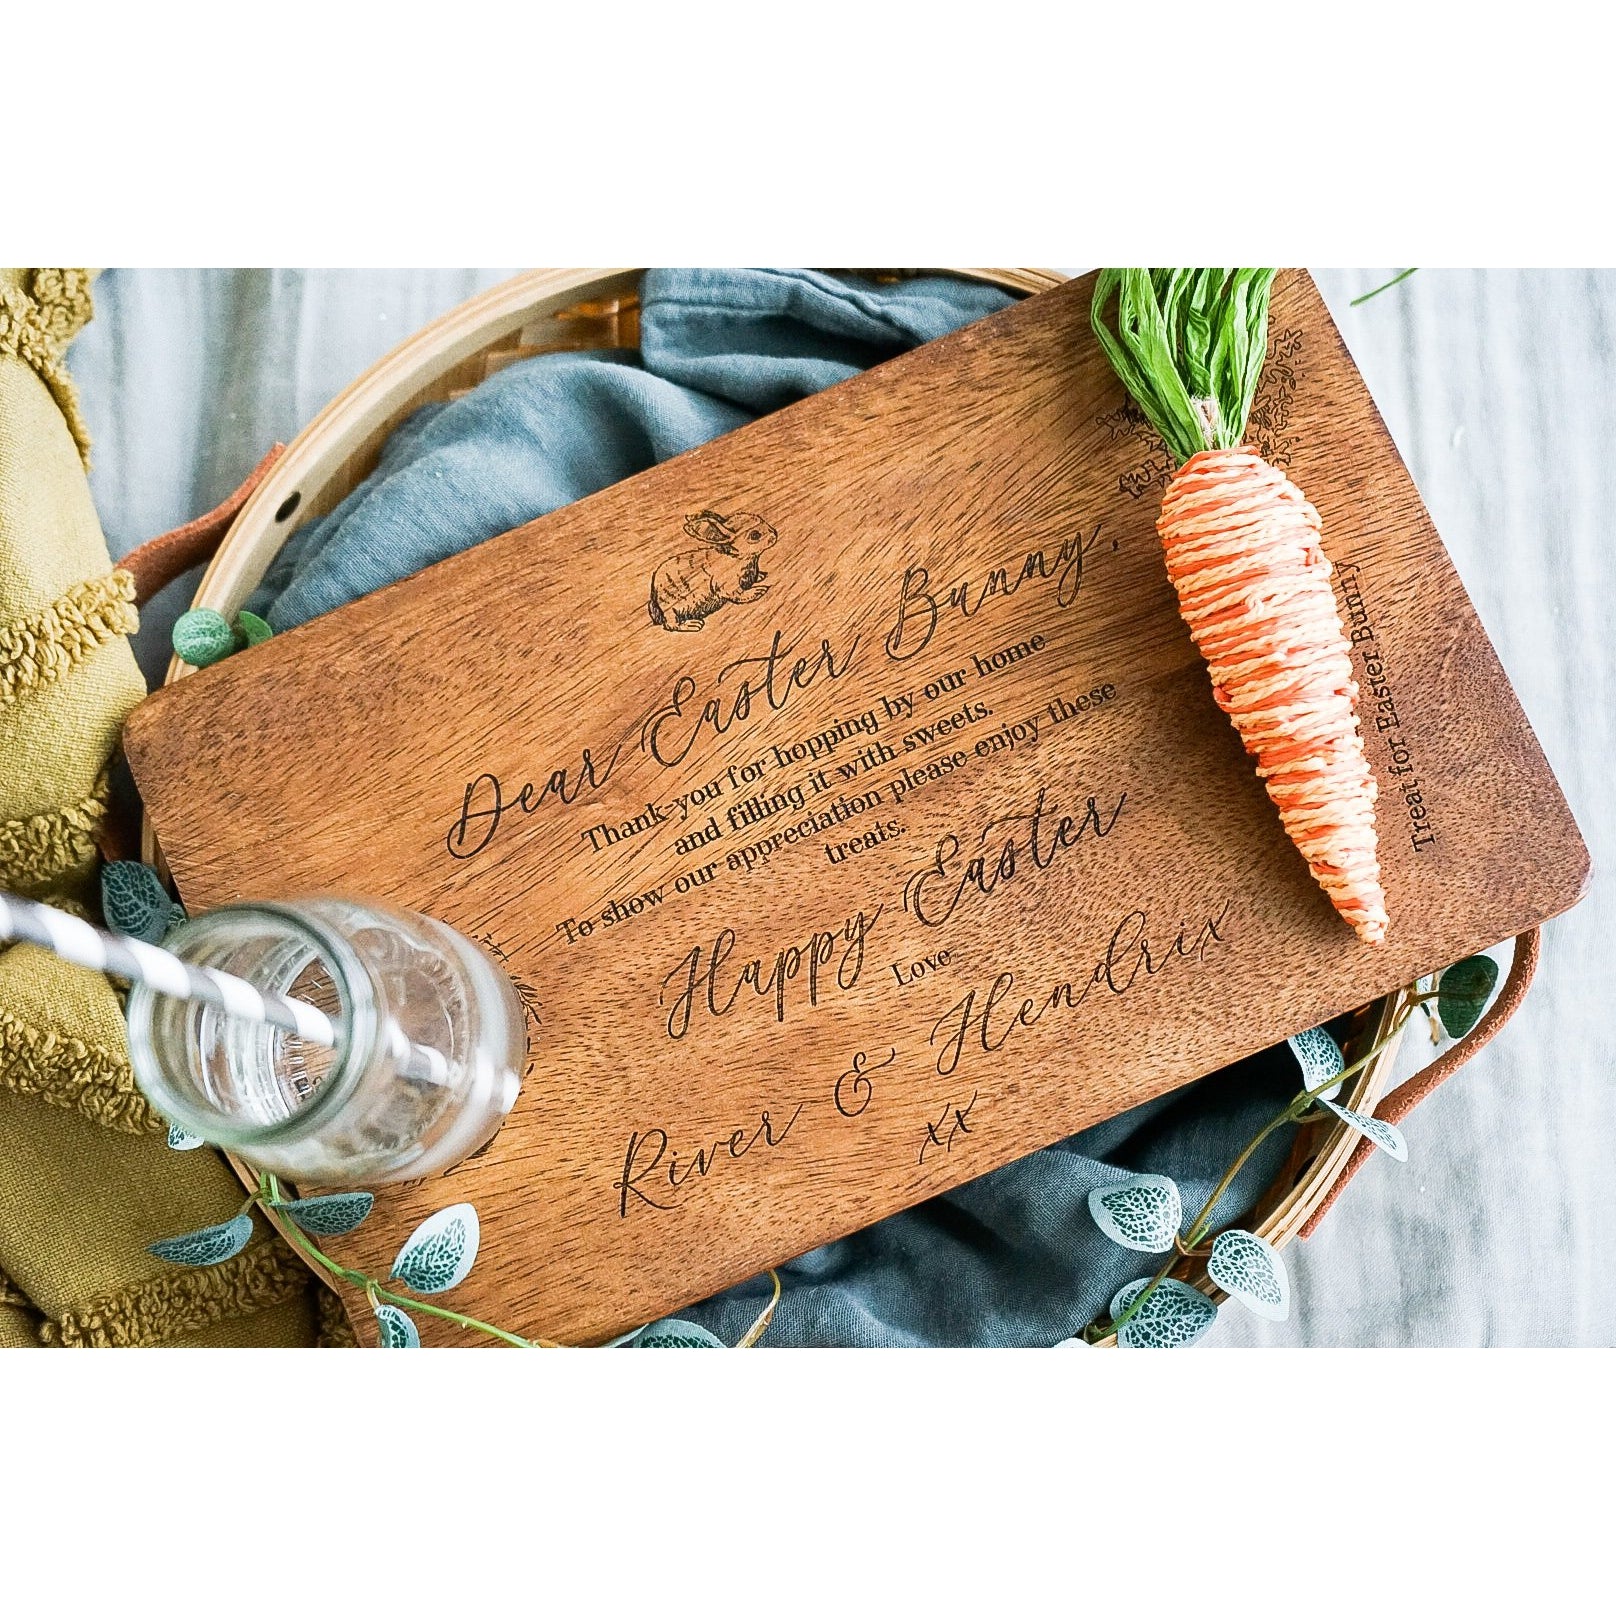 Dear Easter Bunny,
Thank-you for hopping by our home
and filling it with sweets.
To show our appreciation please enjoy these
treats.
Happy Easter
Love
River & Hendrix
xx
Treat for Easter Bunny